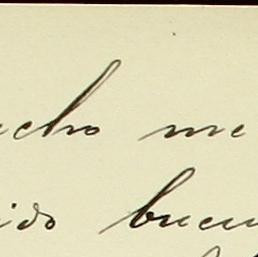 echo me
ido buen